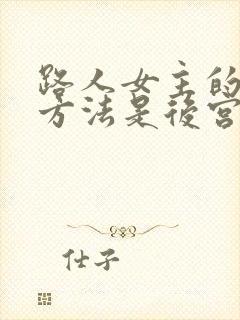 路人女主的
方法是後宮
仕子